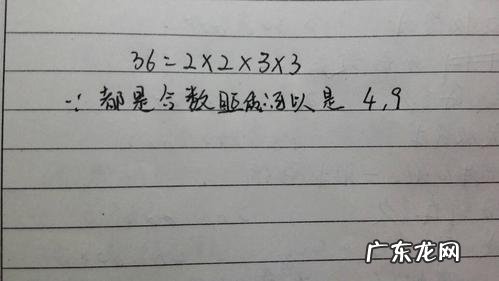 36=2×2×3×3
∵都是合数且质所以是 4,9
广东龙网